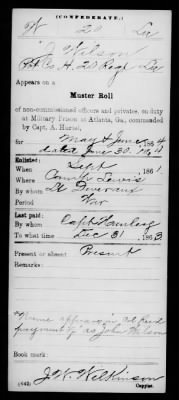 (CONFEDERATE.)
W 20 La
J Wilson
Pvt Co H, 20 Regt La
Appears on a
Muster Roll
of non-commissioned officers and privates, on duty
at Military Prison at Atlanta, Ga., commanded
by Capt. A. Hurtel,
for May & June, 1864
dated June 30, 1864
Enlisted:
When Sept 1861
Where Camp Lewis
By whom
Period War
Last paid:
By whom Capt
To what time Dec 31 1863
Present or absent Present
Remarks:
Name appears in
payment by as John Wilson
Book mark:
J. W. Wilkinson
(642) Copyist.